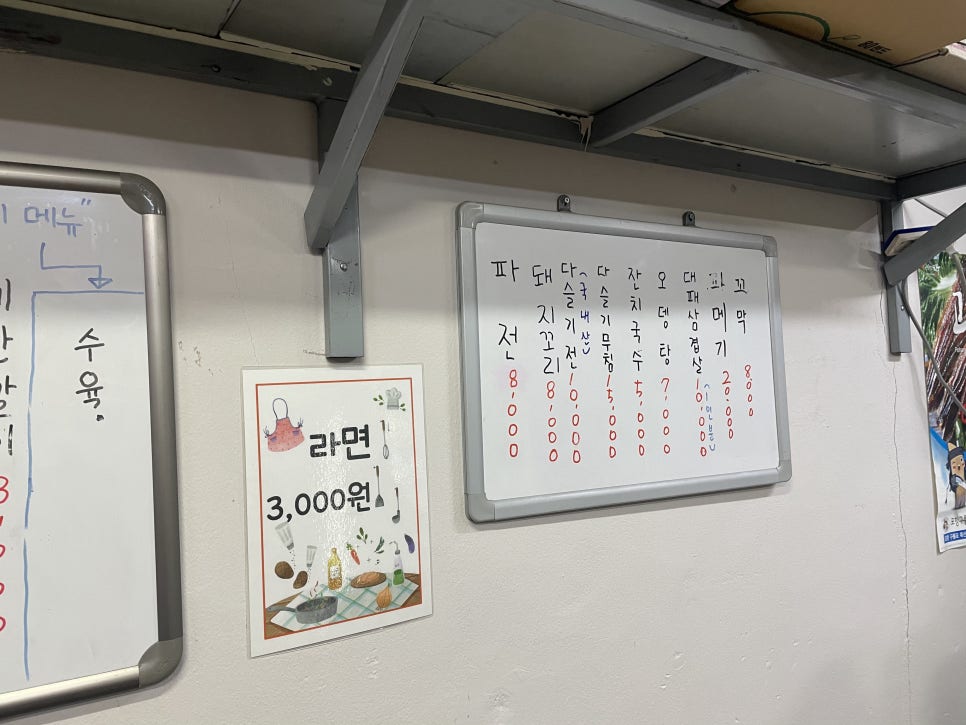 메뉴"
수육.
라면
3,000원
파전 8,000
돼지꼬리 8,000
다슬기전 10,000
(국내산)
다슬기무침 15,000
잔치국수 5,000
오뎅탕 7,000
대패삼겹살 10,000
(1인분)
과메기 20,000
꼬막 8,000